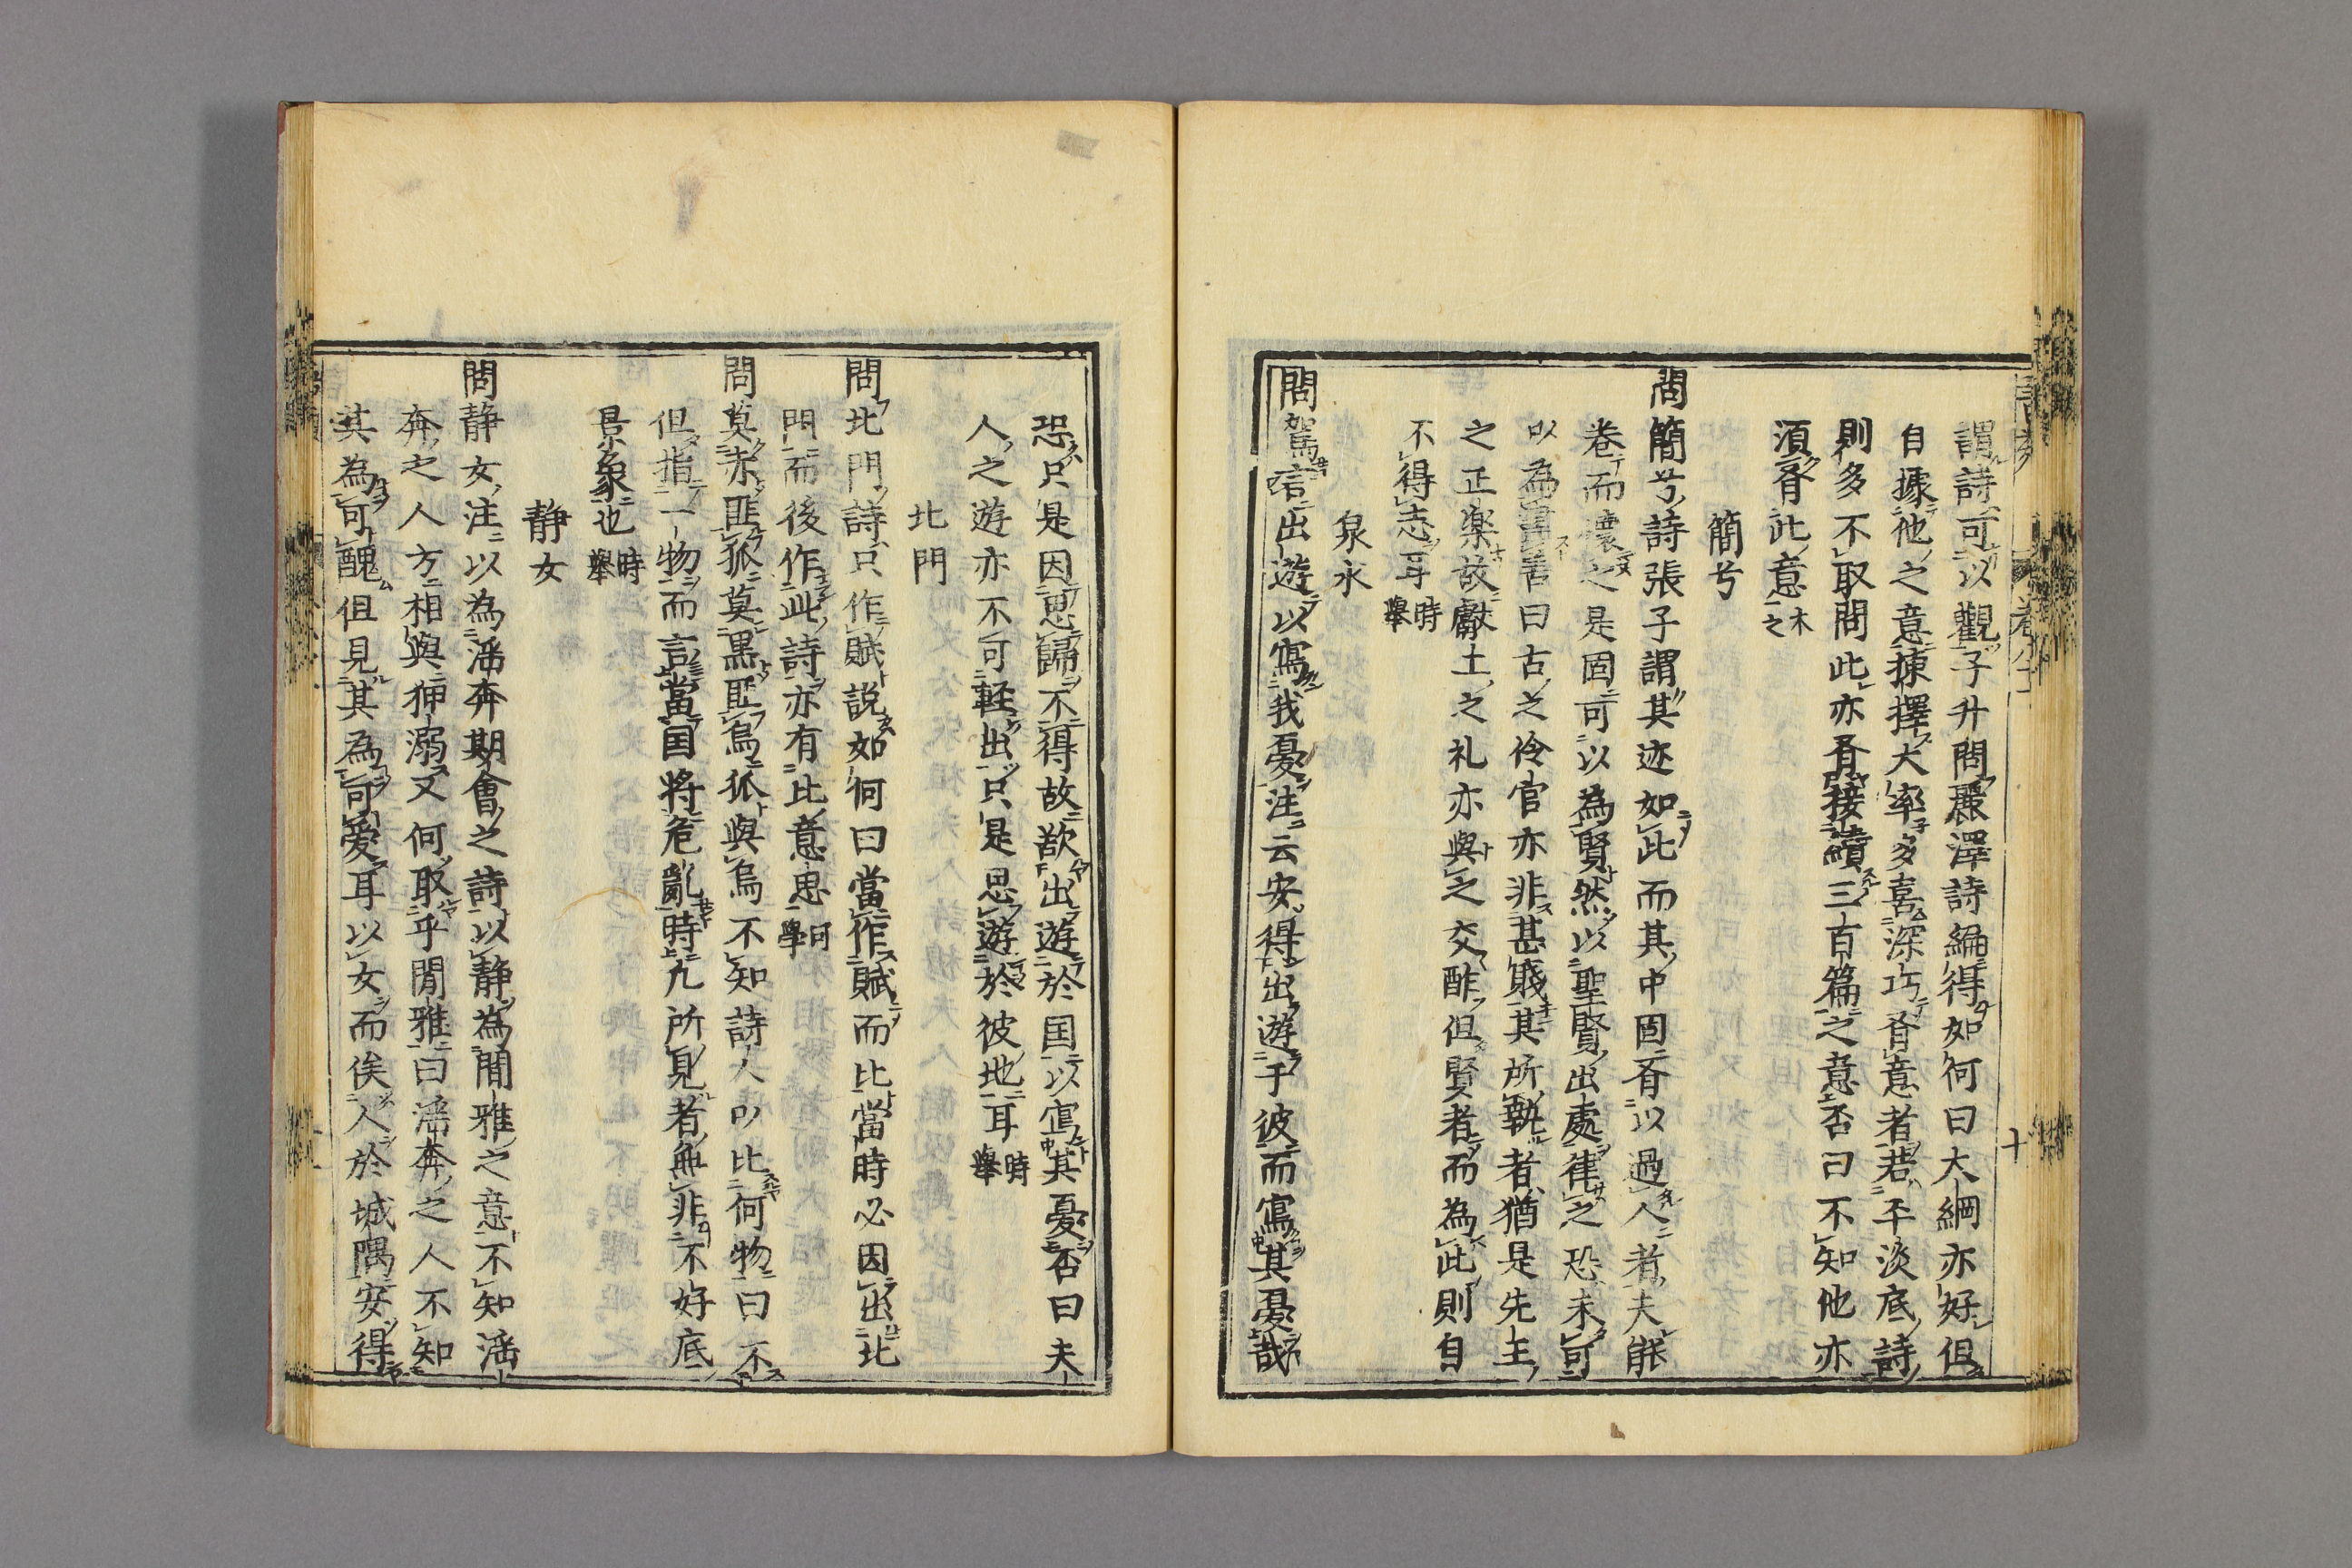 謂詩可以觀子升問麗澤詩編得如何曰大綱亦好但
自據他之意揀擇大率多喜深巧有意者若平淡底詩
則多不取問此亦有接續三百篇之意否曰不知他亦
須有此意木之
簡兮
問簡兮詩張子謂其迹如此而其中固有以過人者夫能
卷而懷之是固可以為賢然以聖賢出處律之恐未可
以為盡善曰古之伶官亦非甚賤其所執者猶是先王
之正楽故獻工之礼亦與之交酢但賢者而為此則自
不得志耳時舉
泉水
問駕言出遊以寫我憂注云安得出遊于彼而寫其憂哉
恐只是因思歸不得故欲出遊於国以寫其憂否曰夫
人之遊亦不可輕出只是思遊於彼地耳時舉
北門
問北門詩只作賦說如何曰當作賦而比當時必因出北
門而後作此詩亦有比意思可學
問莫赤匪狐莫黒匪烏狐與烏不知詩人以比何物曰不
但指一物而言當国將危亂時凢所見者無非不好底
景象也時舉
静女
問静女注以為滛奔期會之詩以静為閒雅之意不知滛
奔之人方相與狎溺又何取乎閒雅曰滛奔之人不知
其為可醜但見其為可愛耳以女而俟人於城隅安得
十